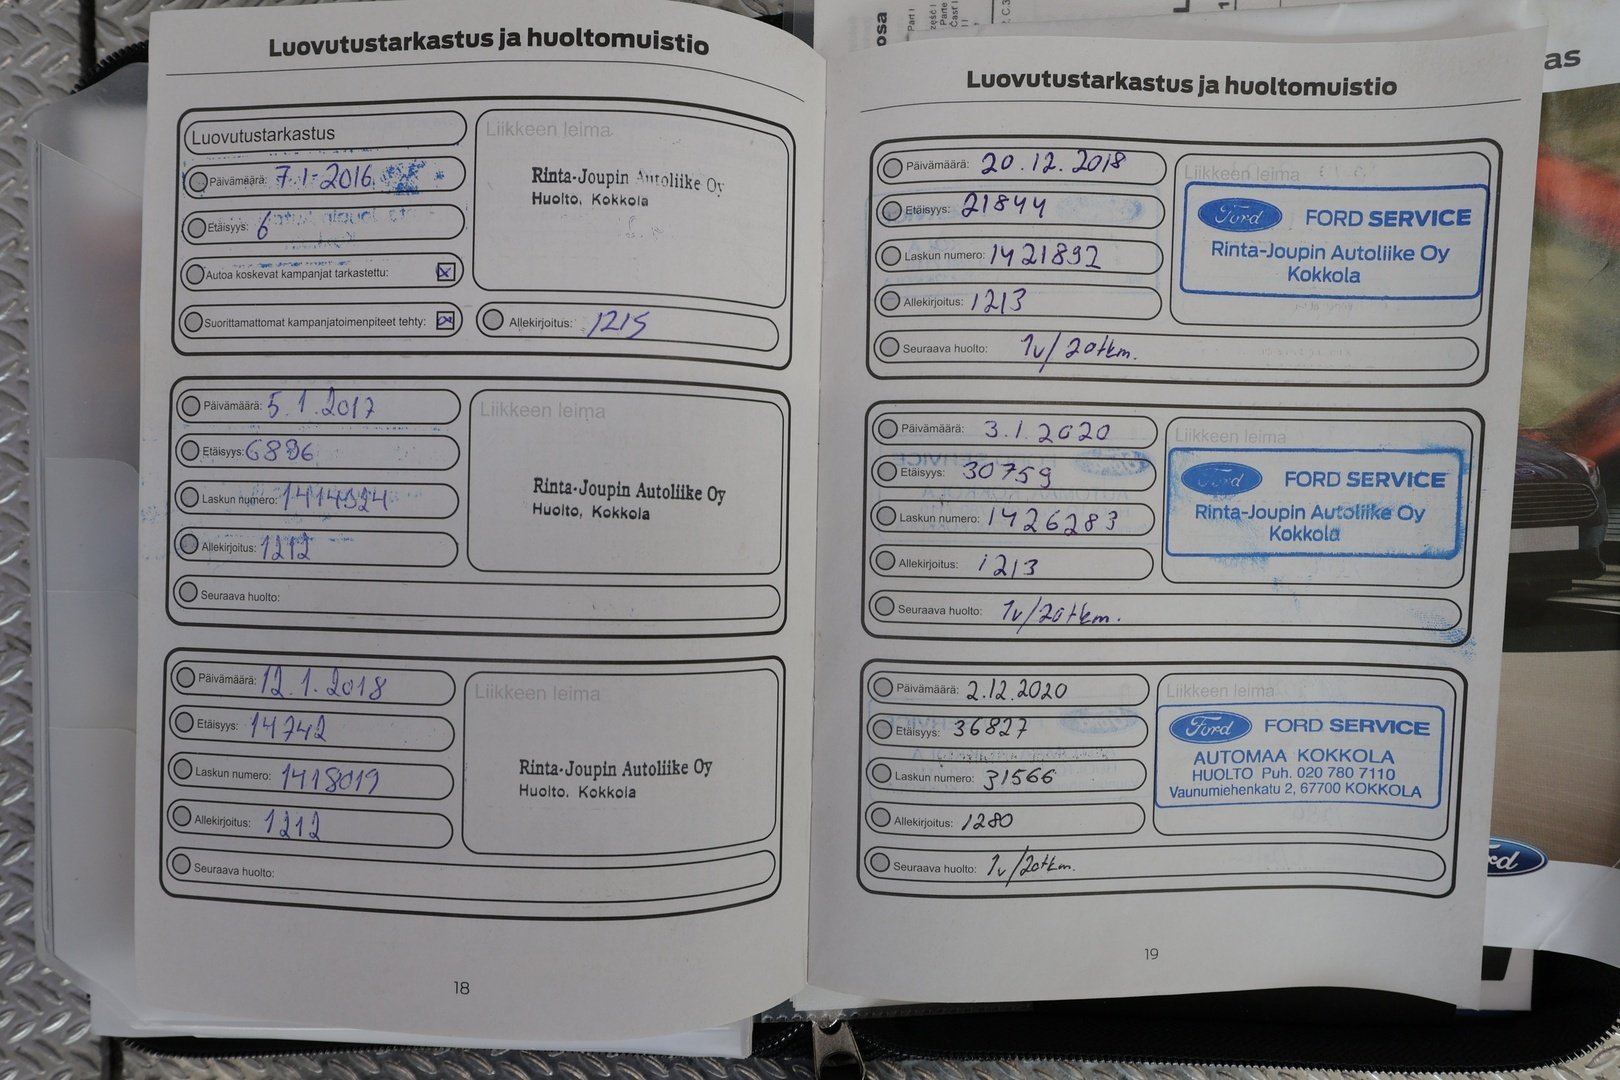 Luovutustarkastus ja huoltomuistio
Luovutustarkastus
Päivämäärä: 7.1-2016
Etäisyys: 6
Autoa koskevat kampanjat tarkastettu: x
Suorittamattomat kampanjatoimenpiteet tehty: x
Liikkeen leima
Rinta-Joupin Autoliike Oy
Huolto, Kokkola
Allekirjoitus: 1215
Päivämäärä: 5.1.2017
Etäisyys: 6896
Laskun numero: 1414924
Allekirjoitus: 1212
Seuraava huolto:
Liikkeen leima
Rinta-Joupin Autoliike Oy
Huolto, Kokkola
Päivämäärä: 12.1.2018
Etäisyys: 14742
Laskun numero: 1418019
Allekirjoitus: 1212
Seuraava huolto:
Liikkeen leima
Rinta-Joupin Autoliike Oy
Huolto, Kokkola
18
Luovutustarkastus ja huoltomuistio
Päivämäärä: 20.12.2018
Etäisyys: 21844
Laskun numero: 1421892
Allekirjoitus: 1213
Seuraava huolto: 1v/20tkm.
Liikkeen leima
Ford FORD SERVICE
Rinta-Joupin Autoliike Oy
Kokkola
Päivämäärä: 3.1.2020
Etäisyys: 30759
Laskun numero: 1426283
Allekirjoitus: 1213
Seuraava huolto: 1v/20tkm.
Liikkeen leima
Ford FORD SERVICE
Rinta-Joupin Autoliike Oy
Kokkola
Päivämäärä: 2.12.2020
Etäisyys: 36827
Laskun numero: 31566
Allekirjoitus: 1280
Seuraava huolto: 1v/20tkm.
Liikkeen leima
Ford FORD SERVICE
AUTOMAA KOKKOLA
HUOLTO Puh. 020 780 7110
Vaunumiehenkatu 2, 67700 KOKKOLA
19